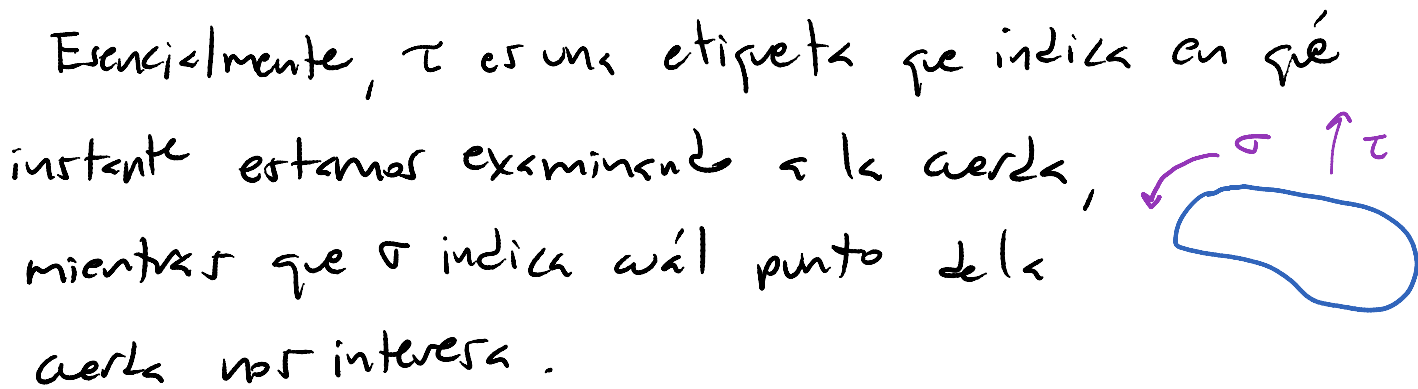 Esencialmente, τ es una etiqueta que indica en qué
instante estamos examinando a la cuerda,
σ τ
mientras que σ indica cuál punto de la
cuerda nos interesa.